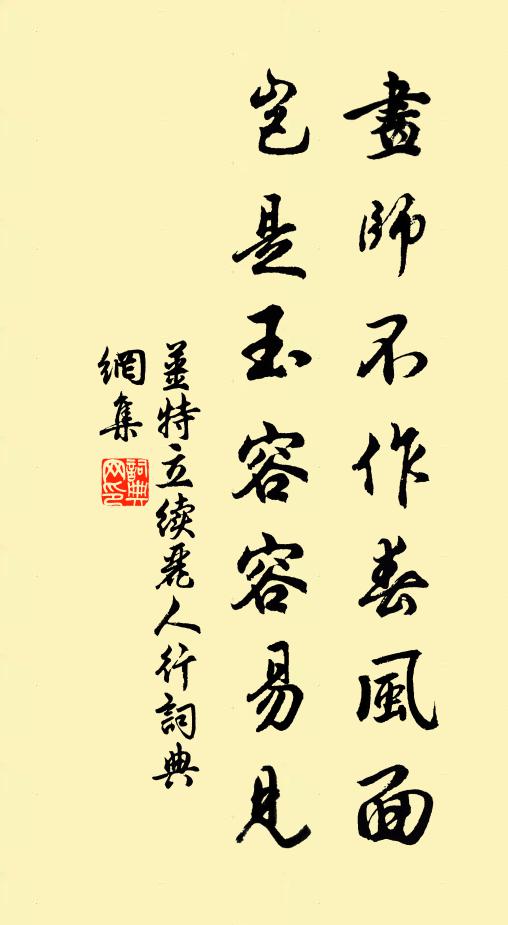 畫師不作春風面
豈是玉容容易見
薑特立續麗人行詞典
網集
詞典
网印